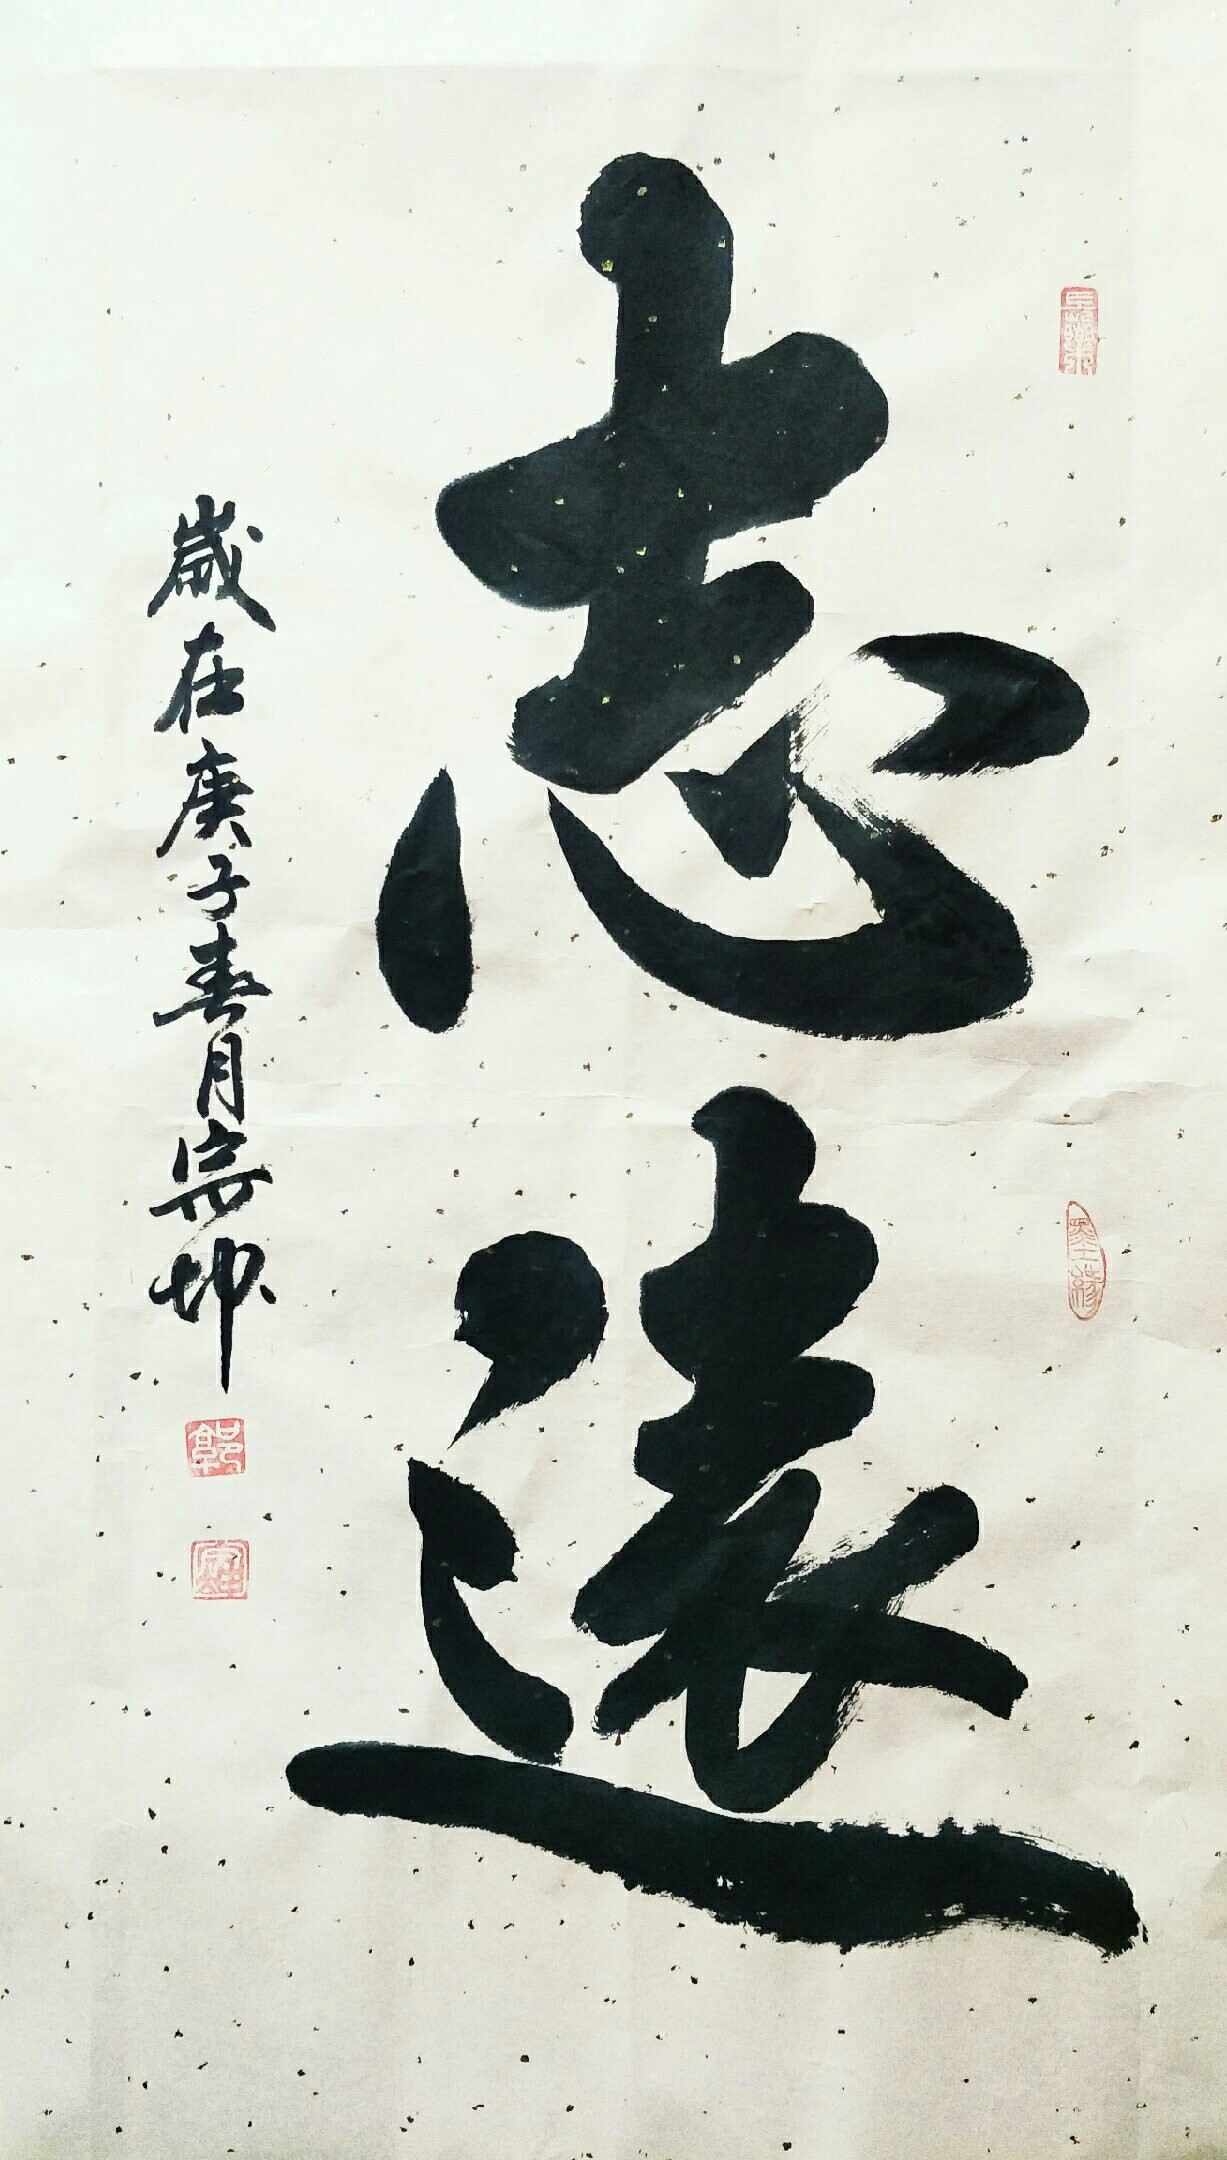 志遠
歲在庚子春月宗坤